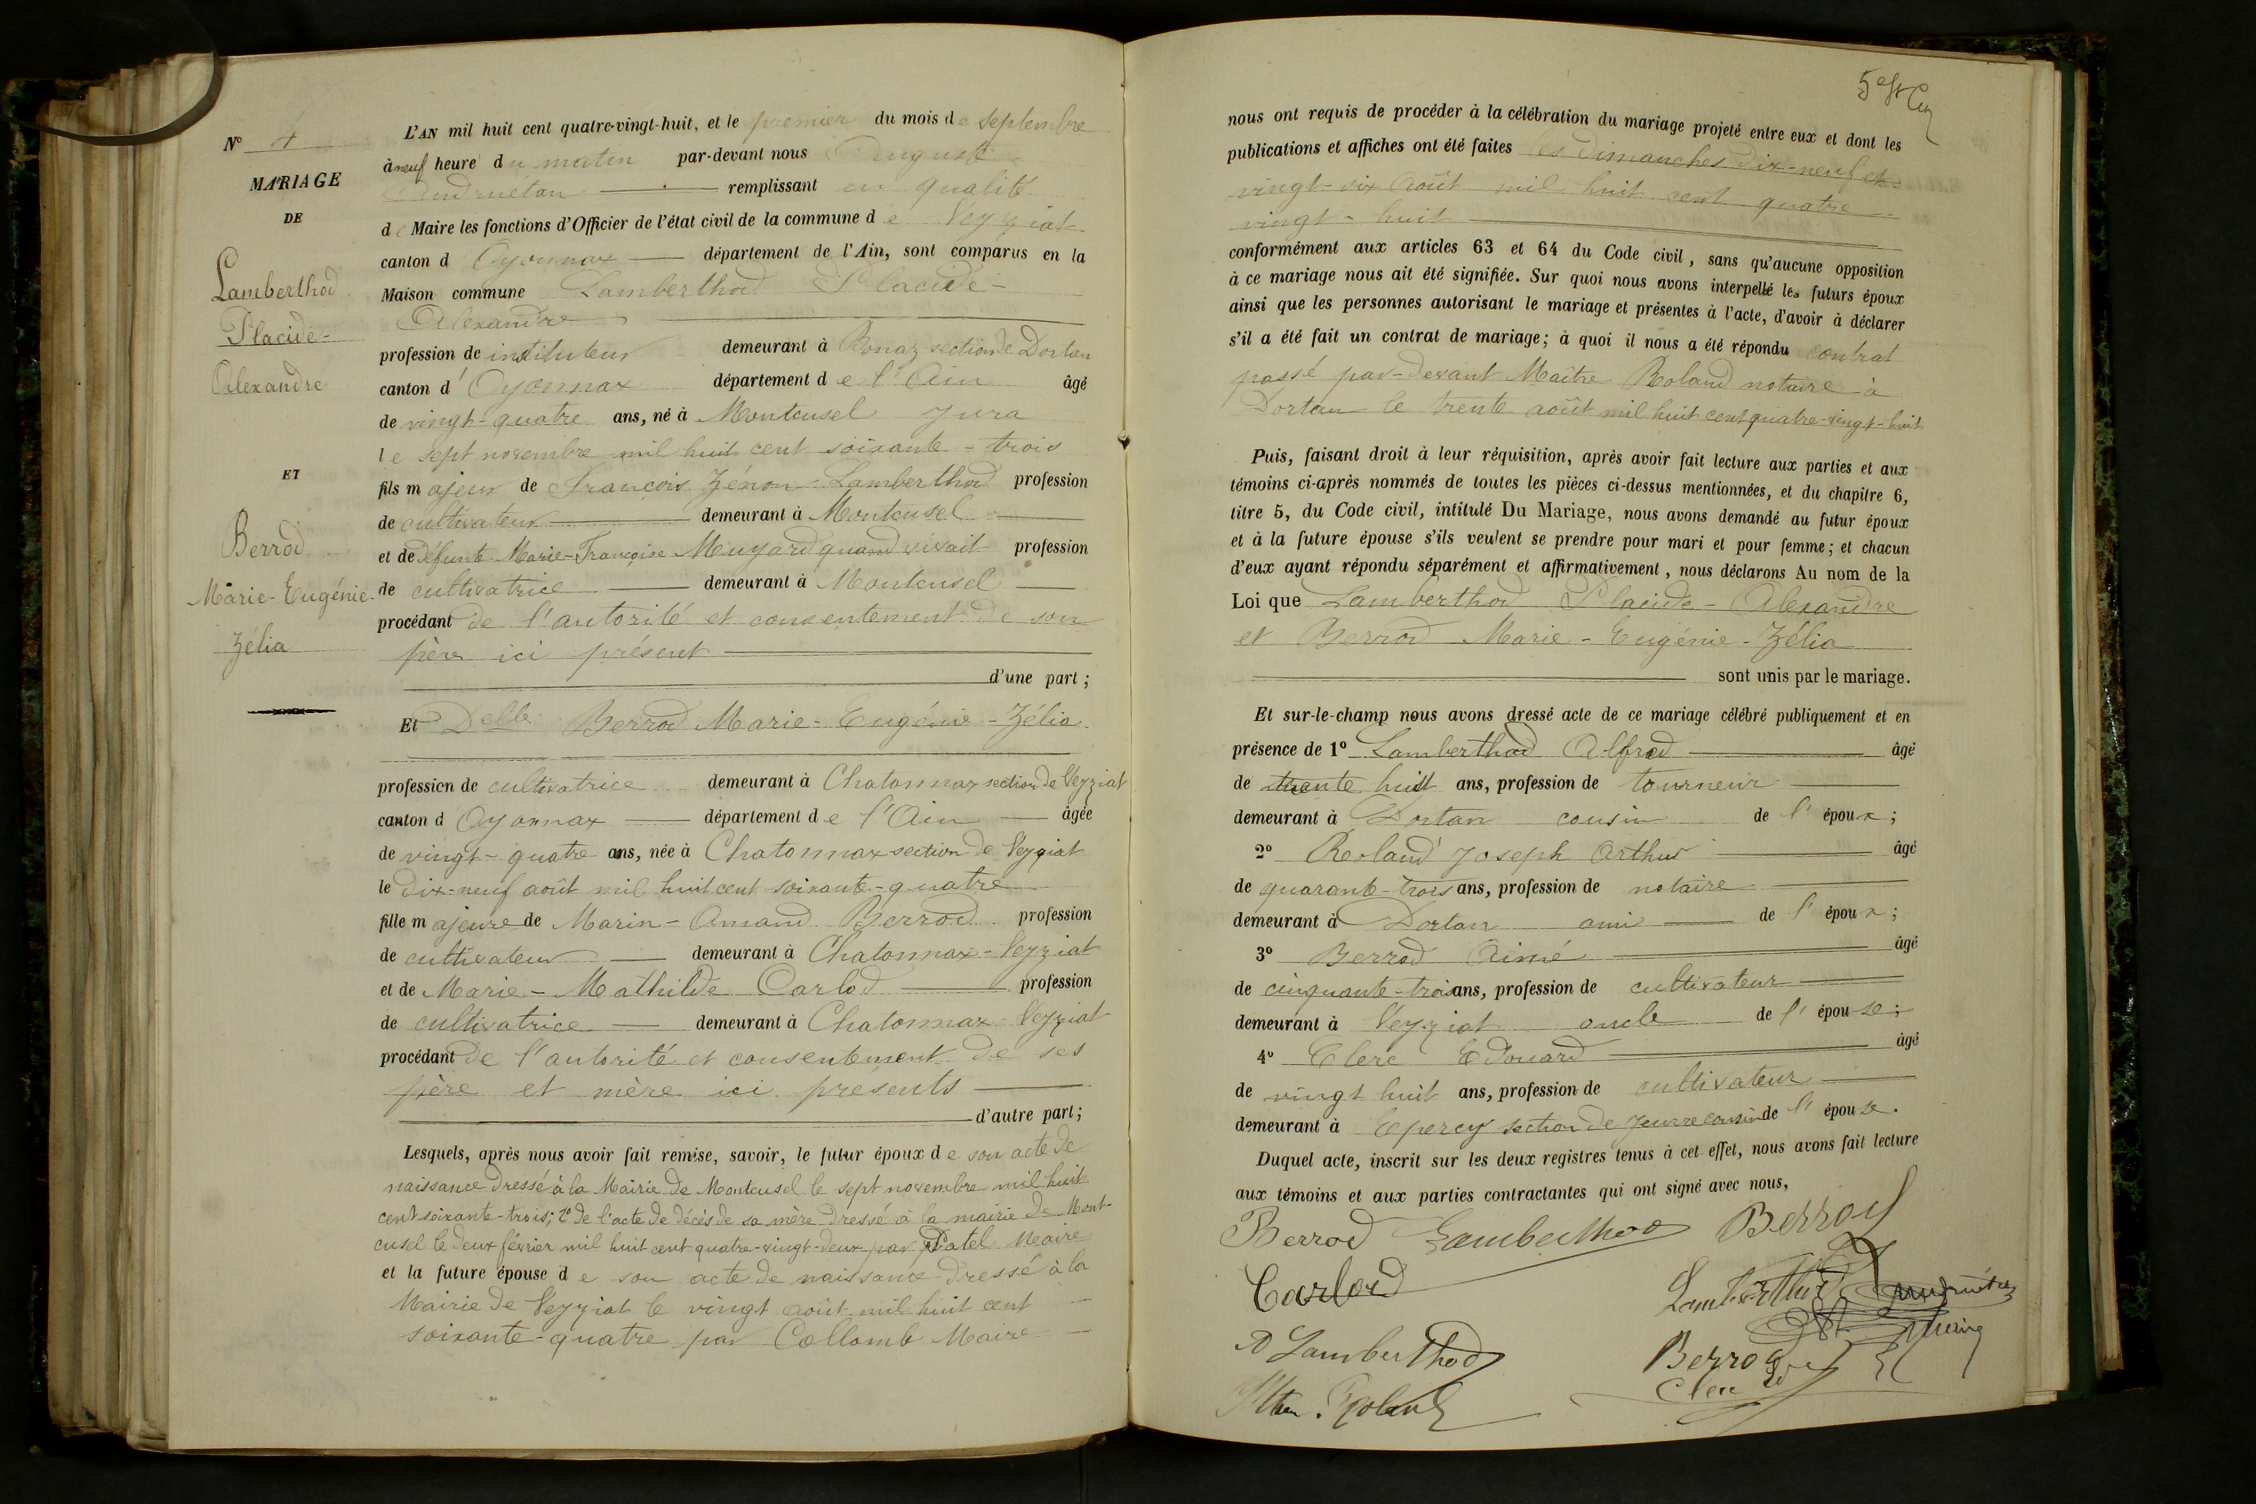 N° 4
MARIAGE
DE
Lamberthod
Placide-
Alexandre
ET
Berrod
Marie-Eugénie-
Zélia
L'AN mil huit cent quatre-vingt-huit, et le premier du mois de septembre
à neuf heure du matin par-devant nous Auguste
Andruétan remplissant en qualité
de Maire les fonctions d'Officier de l'état civil de la commune de Veyziat
canton d Oyonnax département de l'Ain, sont comparus en la
Maison commune Lamberthod Placide-
Alexandre
profession de instituteur demeurant à Bonaz section de Dortan
canton d' Oyonnax département de l'Ain âgé
de vingt-quatre ans, né à Montcusel Jura
le sept novembre mil huit cent soixante-trois
fils majeur de François Zénon Lamberthod profession
de cultivateur demeurant à Montcusel
et de défunte Marie-Françoise Muyard quand vivait profession
de cultivatrice demeurant à Montcusel
procédant de l'autorité et consentement de son
père ici présent
d'une part;
Et Delle Berrod Marie-Eugénie-Zélia
profession de cultivatrice demeurant à Chatonnax section de Veyziat
canton d Oyonnax département de l'Ain âgée
de vingt-quatre ans, née à Chatonnax section de Veyziat
le dix-neuf août mil huit cent soixante-quatre
fille majeure de Marin-Amand Berrod profession
de cultivateur demeurant à Chatonnax-Veyziat
et de Marie-Mathilde Carlod profession
de cultivatrice demeurant à Chatonnax Veyziat
procédant de l'autorité et consentement de ses
père et mère ici présents
d'autre part;
Lesquels, après nous avoir fait remise, savoir, le futur époux de son acte de
naissance dressé à la Mairie de Montcusel le sept novembre mil huit
cent soixante-trois; 2° de l'acte de décès de sa mère dressé à la mairie de Mont-
cusel le deux février mil huit cent quatre-vingt-deux par Patel Maire
et la future épouse de son acte de naissance dressé à la
Mairie de Veyziat le vingt août mil huit cent
soixante-quatre par Collomb Maire
nous ont requis de procéder à la célébration du mariage projeté entre eux et dont les
publications et affiches ont été faites les dimanches dix-neuf et
vingt-six août mil huit cent quatre
vingt-huit
conformément aux articles 63 et 64 du Code civil, sans qu'aucune opposition
à ce mariage nous ait été signifiée. Sur quoi nous avons interpellé les futurs époux
ainsi que les personnes autorisant le mariage et présentes à l'acte, d'avoir à déclarer
s'il a été fait un contrat de mariage; à quoi il nous a été répondu contrat
passé par-devant Maître Roland notaire à
Dortan le trente août mil huit cent quatre-vingt-huit
Puis, faisant droit à leur réquisition, après avoir fait lecture aux parties et aux
témoins ci-après nommés de toutes les pièces ci-dessus mentionnées, et du chapitre 6,
titre 5, du Code civil, intitulé Du Mariage, nous avons demandé au futur époux
et à la future épouse s'ils veulent se prendre pour mari et pour femme; et chacun
d'eux ayant répondu séparément et affirmativement, nous déclarons Au nom de la
Loi que Lamberthod Placide-Alexandre
et Berrod Marie-Eugénie-Zélia
sont unis par le mariage.
Et sur-le-champ nous avons dressé acte de ce mariage célébré publiquement et en
présence de 1° Lamberthod Alfred âgé
de trente huit ans, profession de tourneur
demeurant à Dortan cousin de l'époux;
2° Roland Joseph Arthur âgé
de quarante-trois ans, profession de notaire
demeurant à Dortan ami de l'époux;
3° Berrod Aimé âgé
de cinquante-trois ans, profession de cultivateur
demeurant à Veyziat oncle de l'épouse;
4° Clerc Edouard âgé
de vingt huit ans, profession de cultivateur
demeurant à Epercy section de Jeurre cousin de l'épouse.
Duquel acte, inscrit sur les deux registres tenus à cet effet, nous avons fait lecture
aux témoins et aux parties contractantes qui ont signé avec nous,
Berrod Lamberthod Berrod
Carlod Lamberthod
A Lamberthod Berrod
Roland Clerc Ed